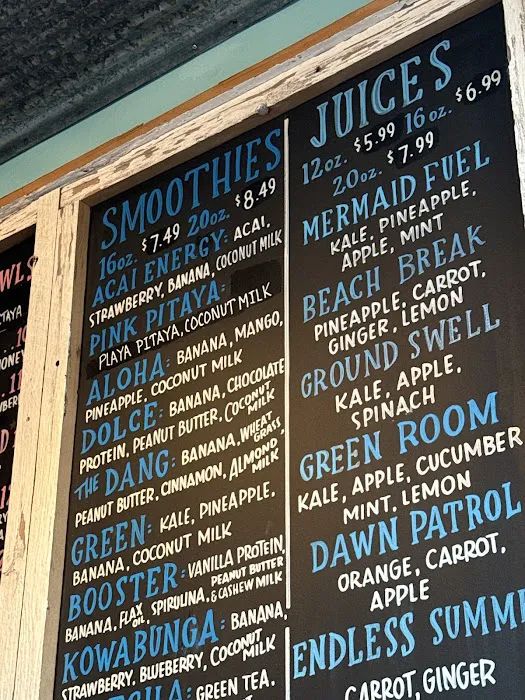 SMOOTHIES
16oz. $7.49 20oz. $8.49
ACAI ENERGY: ACAI,
STRAWBERRY, BANANA, COCONUT MILK
PINK PITAYA:
PLAYA PITAYA, COCONUT MILK
ALOHA: BANANA, MANGO,
PINEAPPLE, COCONUT MILK
DOLCE: BANANA, CHOCOLATE
PROTEIN, PEANUT BUTTER, COCONUT MILK
THE DANG: BANANA, WHEAT GRASS,
PEANUT BUTTER, CINNAMON, ALMOND MILK
GREEN: KALE, PINEAPPLE,
BANANA, COCONUT MILK
BOOSTER: VANILLA PROTEIN,
BANANA, FLAX OIL, SPIRULINA, PEANUT BUTTER & CASHEW MILK
KOWABUNGA: BANANA,
STRAWBERRY, BLUEBERRY, COCONUT MILK
GREEN TEA,
JUICES
12oz. $5.99 16oz. $6.99
20oz. $7.99
MERMAID FUEL
KALE, PINEAPPLE,
APPLE, MINT
BEACH BREAK
PINEAPPLE, CARROT,
GINGER, LEMON
GROUND SWELL
KALE, APPLE,
SPINACH
GREEN ROOM
KALE, APPLE, CUCUMBER
MINT, LEMON
DAWN PATROL
ORANGE, CARROT,
APPLE
ENDLESS SUMME
CARROT, GINGER